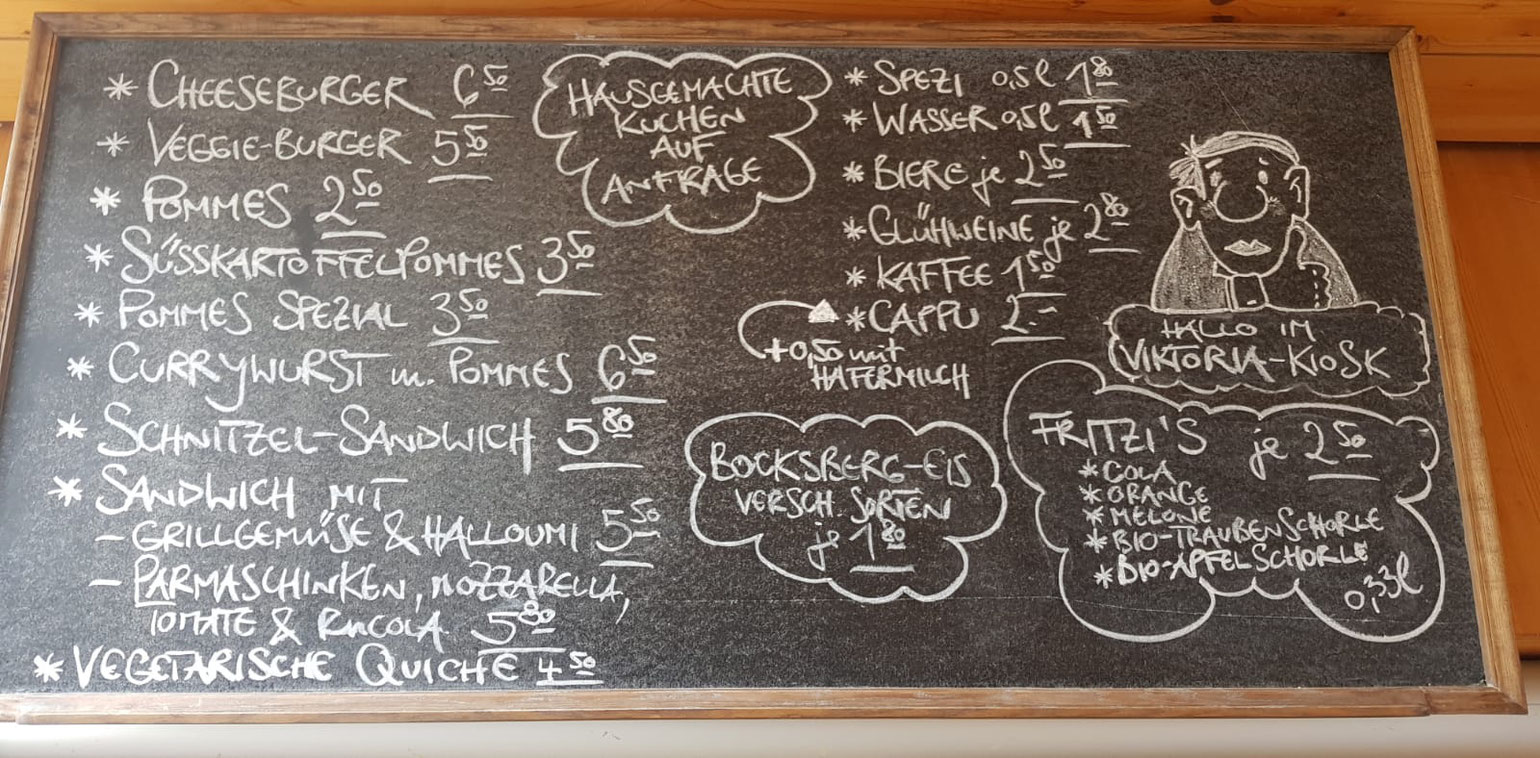 * CHEESEBURGER 6 50
* VEGGIE-BURGER 5 50
* POMMES 2 50
* SÜSSKARTOFFELPOMMES 3 50
* POMMES SPEZIAL 3 50
* CURRYWURST m. POMMES 6 50
* SCHNITZEL-SANDWICH 5 80
* SANDWICH MIT
- GRILLGEMÜSE & HALLOUMI 5 50
- PARMASCHINKEN, MOZZARELLA,
TOMATE & RUCOLA 5 80
* VEGETARISCHE QUICHE 4 50
HAUSGEMACHTE
KUCHEN
AUF
ANFRAGE
* SPEZI 0,5l 1 80
* WASSER 0,5l 1 50
* BIERE je 2 50
* GLÜHWEINE je 2 80
* KAFFEE 1 50
* CAPPU 2.-
+0,50 mit
HAFERMILCH
BOCKSBERG-EIS
VERSCH. SORTEN
je 1 80
HALLO IM
VIKTORIA-KIOSK
FRITZI'S je 2 50
* COLA
* ORANGE
* MELONE
* BIO-TRAUBENSCHORLE
* BIO-APFELSCHORLE
0,33l